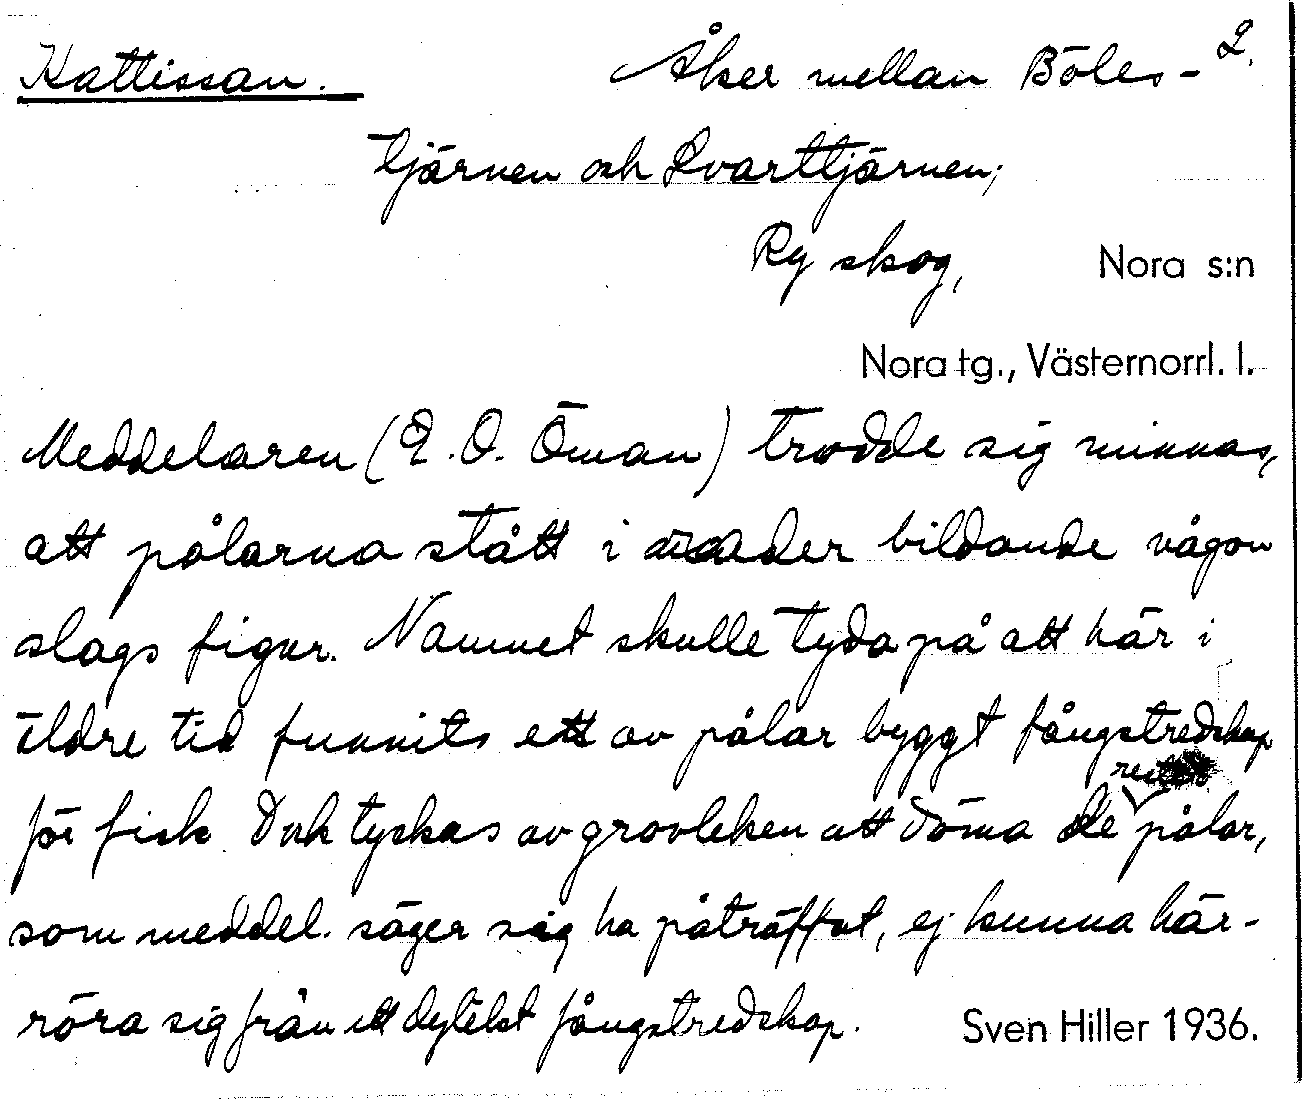 Kattissan. Åker mellan Böles- 2.
tjärnen och Svarttjärnen;
Ry skog, Nora s:n
Nora tg., Västernorrl. l.
Meddelaren (E. O. Öman) trodde sig minnas,
att pålarna stått i rader bildande någon
slags figur. Namnet skulle tyda på att här i
äldre tid funnits ett av pålar byggt fångstredskap
för fisk. Dock tyckas av grovleken att döma de rester
pålar,
som meddel. säger sig ha påträffat, ej kunna här-
röra sig från ett dylikt fångstredskap. Sven Hiller 1936.